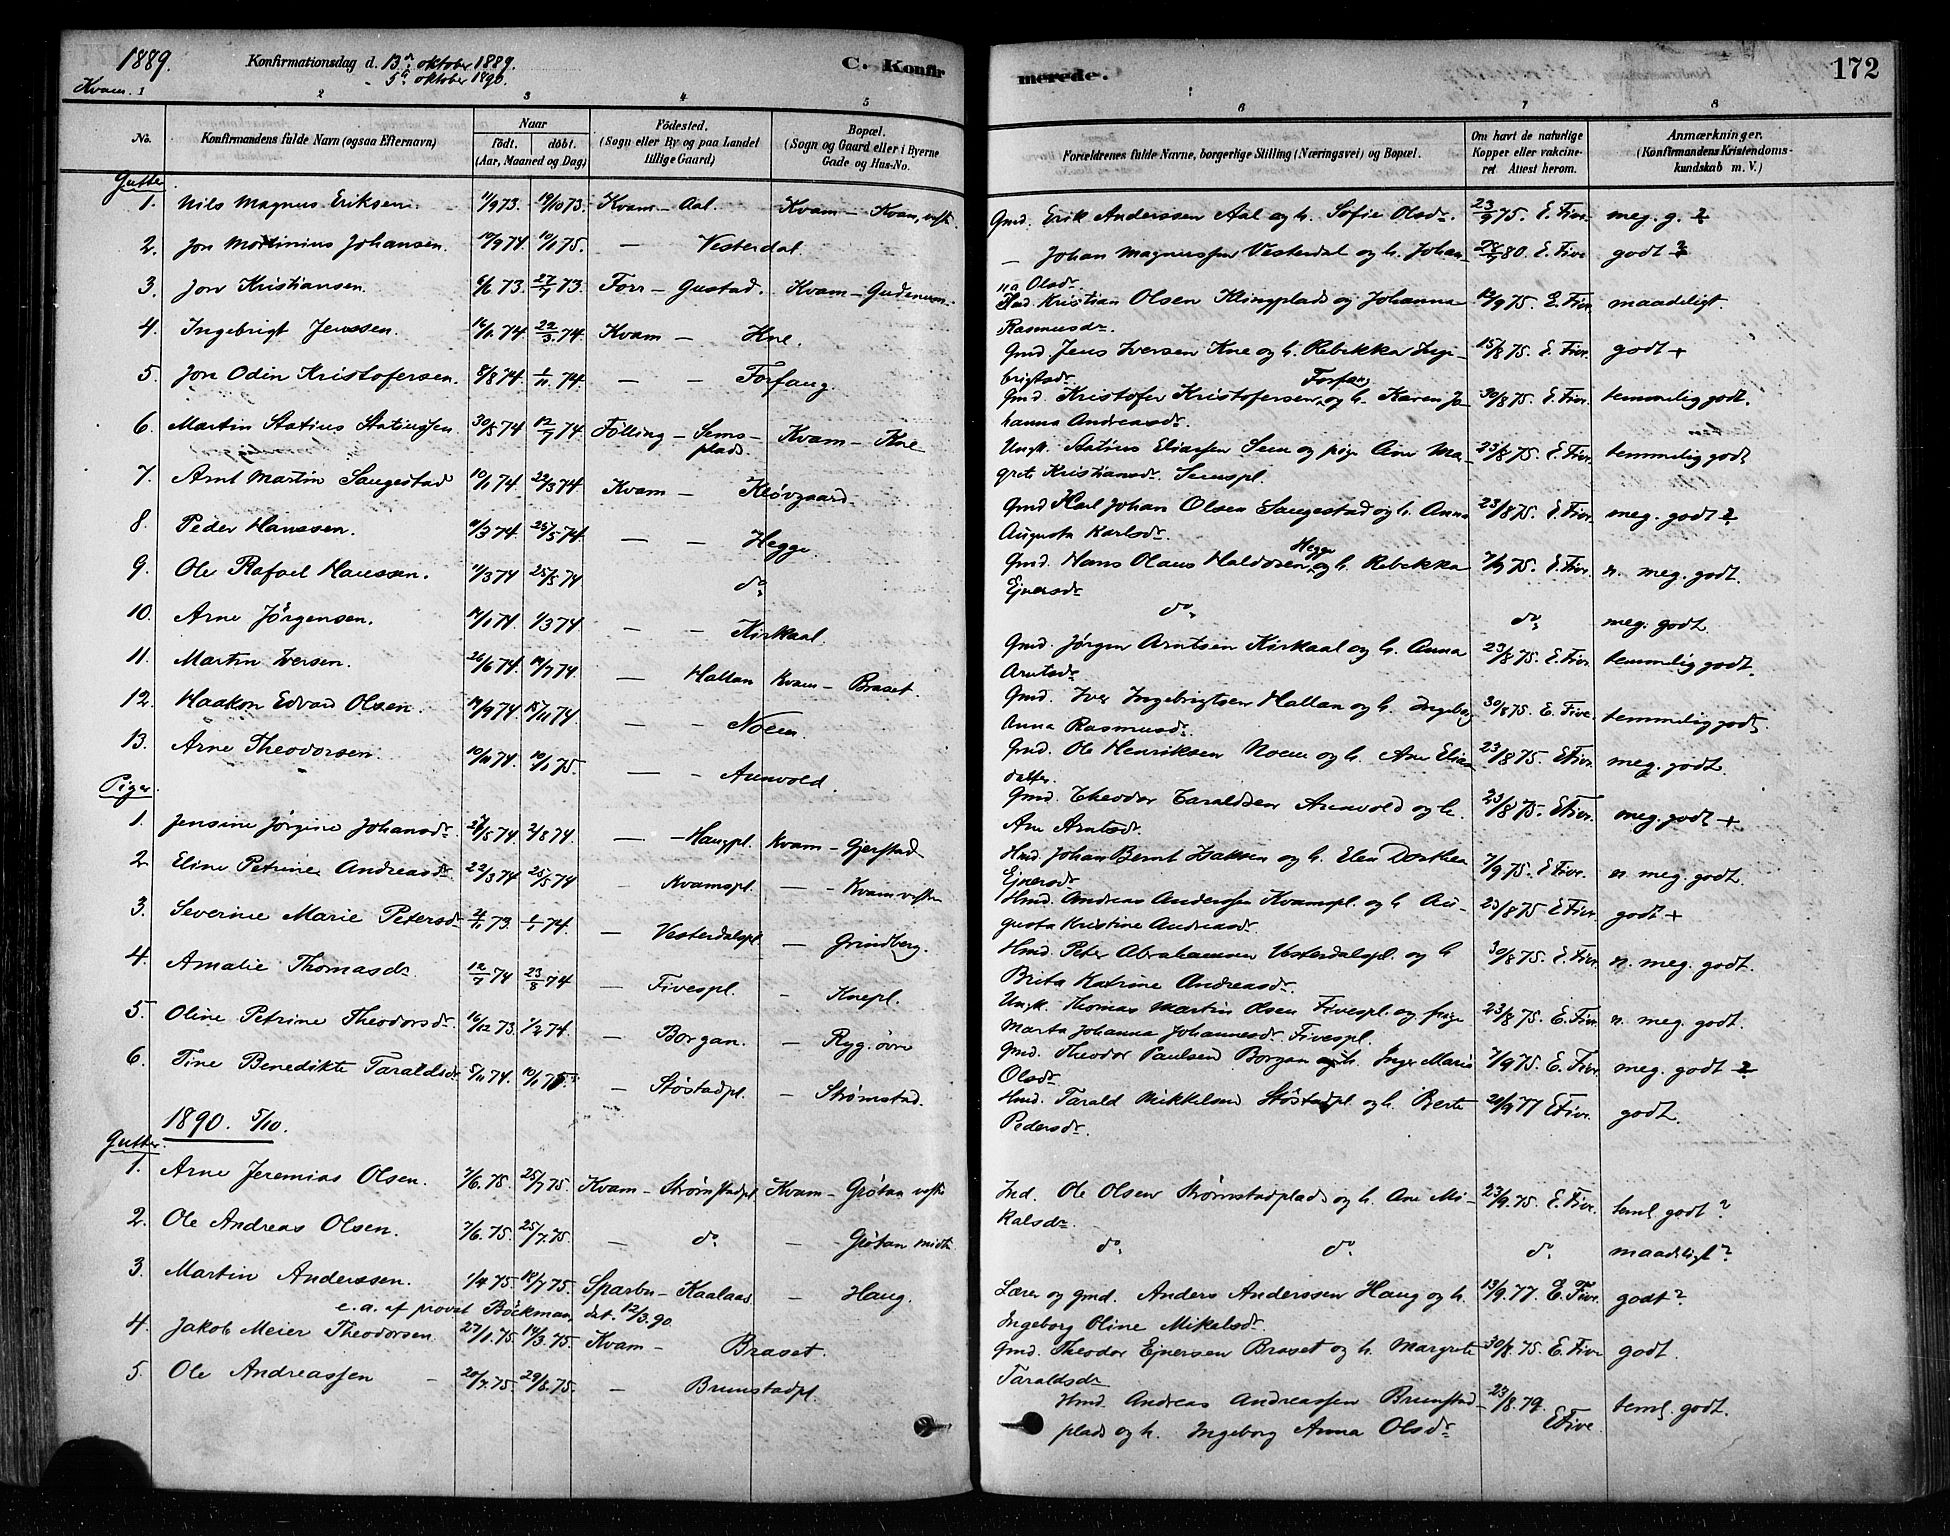 1889. Konfirmationsdag d. 13de oktober 1889. C. Konfir
Kvam. - 5te oktober 1890.
merede. 172
1 2 3 4 5
6 7 8
No. Konfirmandens fulde Navn (ogsaa Efternavn) Naar Födt. döbt. (Aar, Maaned og Dag.) Födested. (Sogn eller By og paa Landet tillige Gaard) Bopæl. (Sogn og Gaard eller i Byerne Gade og Hus-No.
Forældrenes fulde Navne, borgerlige Stilling (Næringsvei) og Bopæl. Om havt de naturlige Kopper eller vakcineret. Attest herom. Anmærkninger. (Konfirmandens Kristendomskundskab m. V.)
Gutter
1. Nils Magnus Eriksen. 11/9 73. 19/10 73. Kvam - Aal. Kvam - Kvam, vestr. Gmd. Erik Anderssen Aal og h. Sofie Olsdr. 23/9 75. E. Five. meg. g. 2
2. Jon Mortinius Johansen. 10/9 74. 10/1 75. - Vesterdal. - Johan Magnussen Vesterdal og h. Johanna Olsdr. 80. E. Five godt
3. Jon Kristiansen. 6/6 73. 27/7 73. Forr - Gustad. Kvam - Kristian Olsen Klingplads og Johanna Rasmusdr. 12/9 75. E. Five. maadeligt
4. Ingebrigt Jenssen. 16/1 74. 22/3 74. Kvam - Kne. Gmd. Jens Iversen Kne og h. Rebekka Ingebrigtsdr. 15/8 75. E. Five. godt +
5. Jon Odin Kristofersen. 8/8 74. 1/11 74. - - Forfang Gmd. Kristofer Kristofersen Forfang og h. Karen Johanna Andreasdr. 30/8 75. E. Five. temmelig godt.
6. Martin Statius Statiussen 30/5 74 12/7 74. Fölling - Semsplads. Kvam - Kne Ungk. Statius Eliassen Sem og pige Ane Magrete Kristiansdr. Semspl. 23/8 75. E. Five. temmelig godt
7. Arnt Martin Saugestad 10/1 74. 22/3 74. Kvam - Kløvgaard. Gmd Karl Johan Olsen Saugestad og h. Anna Augusta Karlsdr. 23/8 75. E. Five. meg. godt 2
8. Peder Hanssen. 11/3 74. 25/5 74. - - Hegge. Gmd. Hans Olaus Haldosen Hegge og h. Rebekka Ejnersdr 7/9 75. E. Five. n. meg. godt.
9. Ole Rafael Hanssen. 11/3 74 25/5 74 do. do. do. meg. godt
10. Arne Jörgensen. 17/1 74. 1/3 74 - - Kirkaal Gmd. Jørgen Arntsen Kirkaal og h. Anna Arntsdr. 23/8 75. E. Five. temmelig godt.
11. Martin Iversen. 26/6 74. 19/7 74 - Hallan Kvam - Braset. Gmd. Iver Ingebrigtsen Hallan og h. Ingeborg Anna Rasmusdr. 30/8 75. E. Five. temmelig godt.
12. Haakon Edvard Olsen. 19/9 74. 15/11 74. - - Noem. Gmd. Ole Henriksen Noem og h. Ane 23/8 75. E Five. meg. godt.
13. Arne Theodorsen. 10/11 74. 10/1 75. - - Aunvold. Gmd. Theodor Taraldsen Aunvold og h. Ane Arntsdr. 23/8 75. E Five. meg. godt +
Piger.
1. Jensine Jörgine Johansdr. 27/5 74. 2/8 74. - Haugpl. Kvam - Gjerstad Hmd. Johan Bernt Isaksen og h. Elen Dorthea Ejnersdr 7/9 75. E Five. n. meg. godt.
2 Eline Petrine Andreasdr. 22/3 74. 25/5 74 - Kvamspl. - Kvam vestre Hmd. Andreas Anderssen Kvamspl. og h. Augusta Kristine Andreasdr. 23/8 75 E Five. godt +
3. Severine Marie Petersdr. 73. 1/1 74. - Vesterdalspl. - Grindberg. Hmd. Peter Abrahamsen Vesterdalspl. og h Brita Katrine Andreasdr. 30/8 75. E. Five. n. meg. godt.
4. Amalie Thomasdr. 12/7 74 23/8 74 - Fivespl. - Knepl. Ungk. Thomas Martin Olsen Fivespl. og pige Marta Johanna Johannesdr. Fivespl. 23/8 75. E. Five. n. meg. godt.
5. Oline Petrine Theodorsdr. 16/12 73. 1/2 74. - Borgan. - Ryg. øvre Gmd. Theodor Paulsen Borgan og h. Inger Marie Olsdr. 7/9 75. E. Five. meg. godt 2
6. Tine Benedikte Taraldsdr. 5/11 74. 10/1 75. - Støstadpl. - Strømstad. Hmd. Tarald Mikkelsen Støstadpl og h. Berte Pedersdr. 20/9 77 E Five. godt.
1890. 5/10.
Gutter.
1. Arne Jeremias Olsen. 7/6. 75. 25/7 75. Kvam - Strømstadpl. Kvam - Grøtan vestre Ind. Ole Olsen Strømstadplads og h. Ane Mikalsdr. 23/9. 75. E. Five. teml. godt?
2. Ole Andreas Olsen. 7/6. 75. 25/7. 75 - do. - Grøtan midtr. do. do. do. maadeligt?
3. Martin Anderssen. 1/4 75. 18/7 75. Sparbu - Kaalaas - Haug. Lærer og gmd. Anders Anderssen Haug og h. Ingeborg Oline Mikalsdr. 13/9. 77. E. Five. godt?
e. a. af provst Böckman, dat. 12/3. 90.
4. Jakob Meier Theodorsen. 27/1. 75. 14/3. 75. Kvam - Braset. Gmd. Theodor Ejnersen Braset og h. Margrete Taraldsdr 30/8. 75. E. Five godt.
5. Ole Andreassen 20/7. 75. 29/8. 75. - Brunstadpl. Hmd. Andreas Andreassen Brunstadplads og h. Ingeborg Anna Olsdr. 23/8. 79. E Five teml. godt.